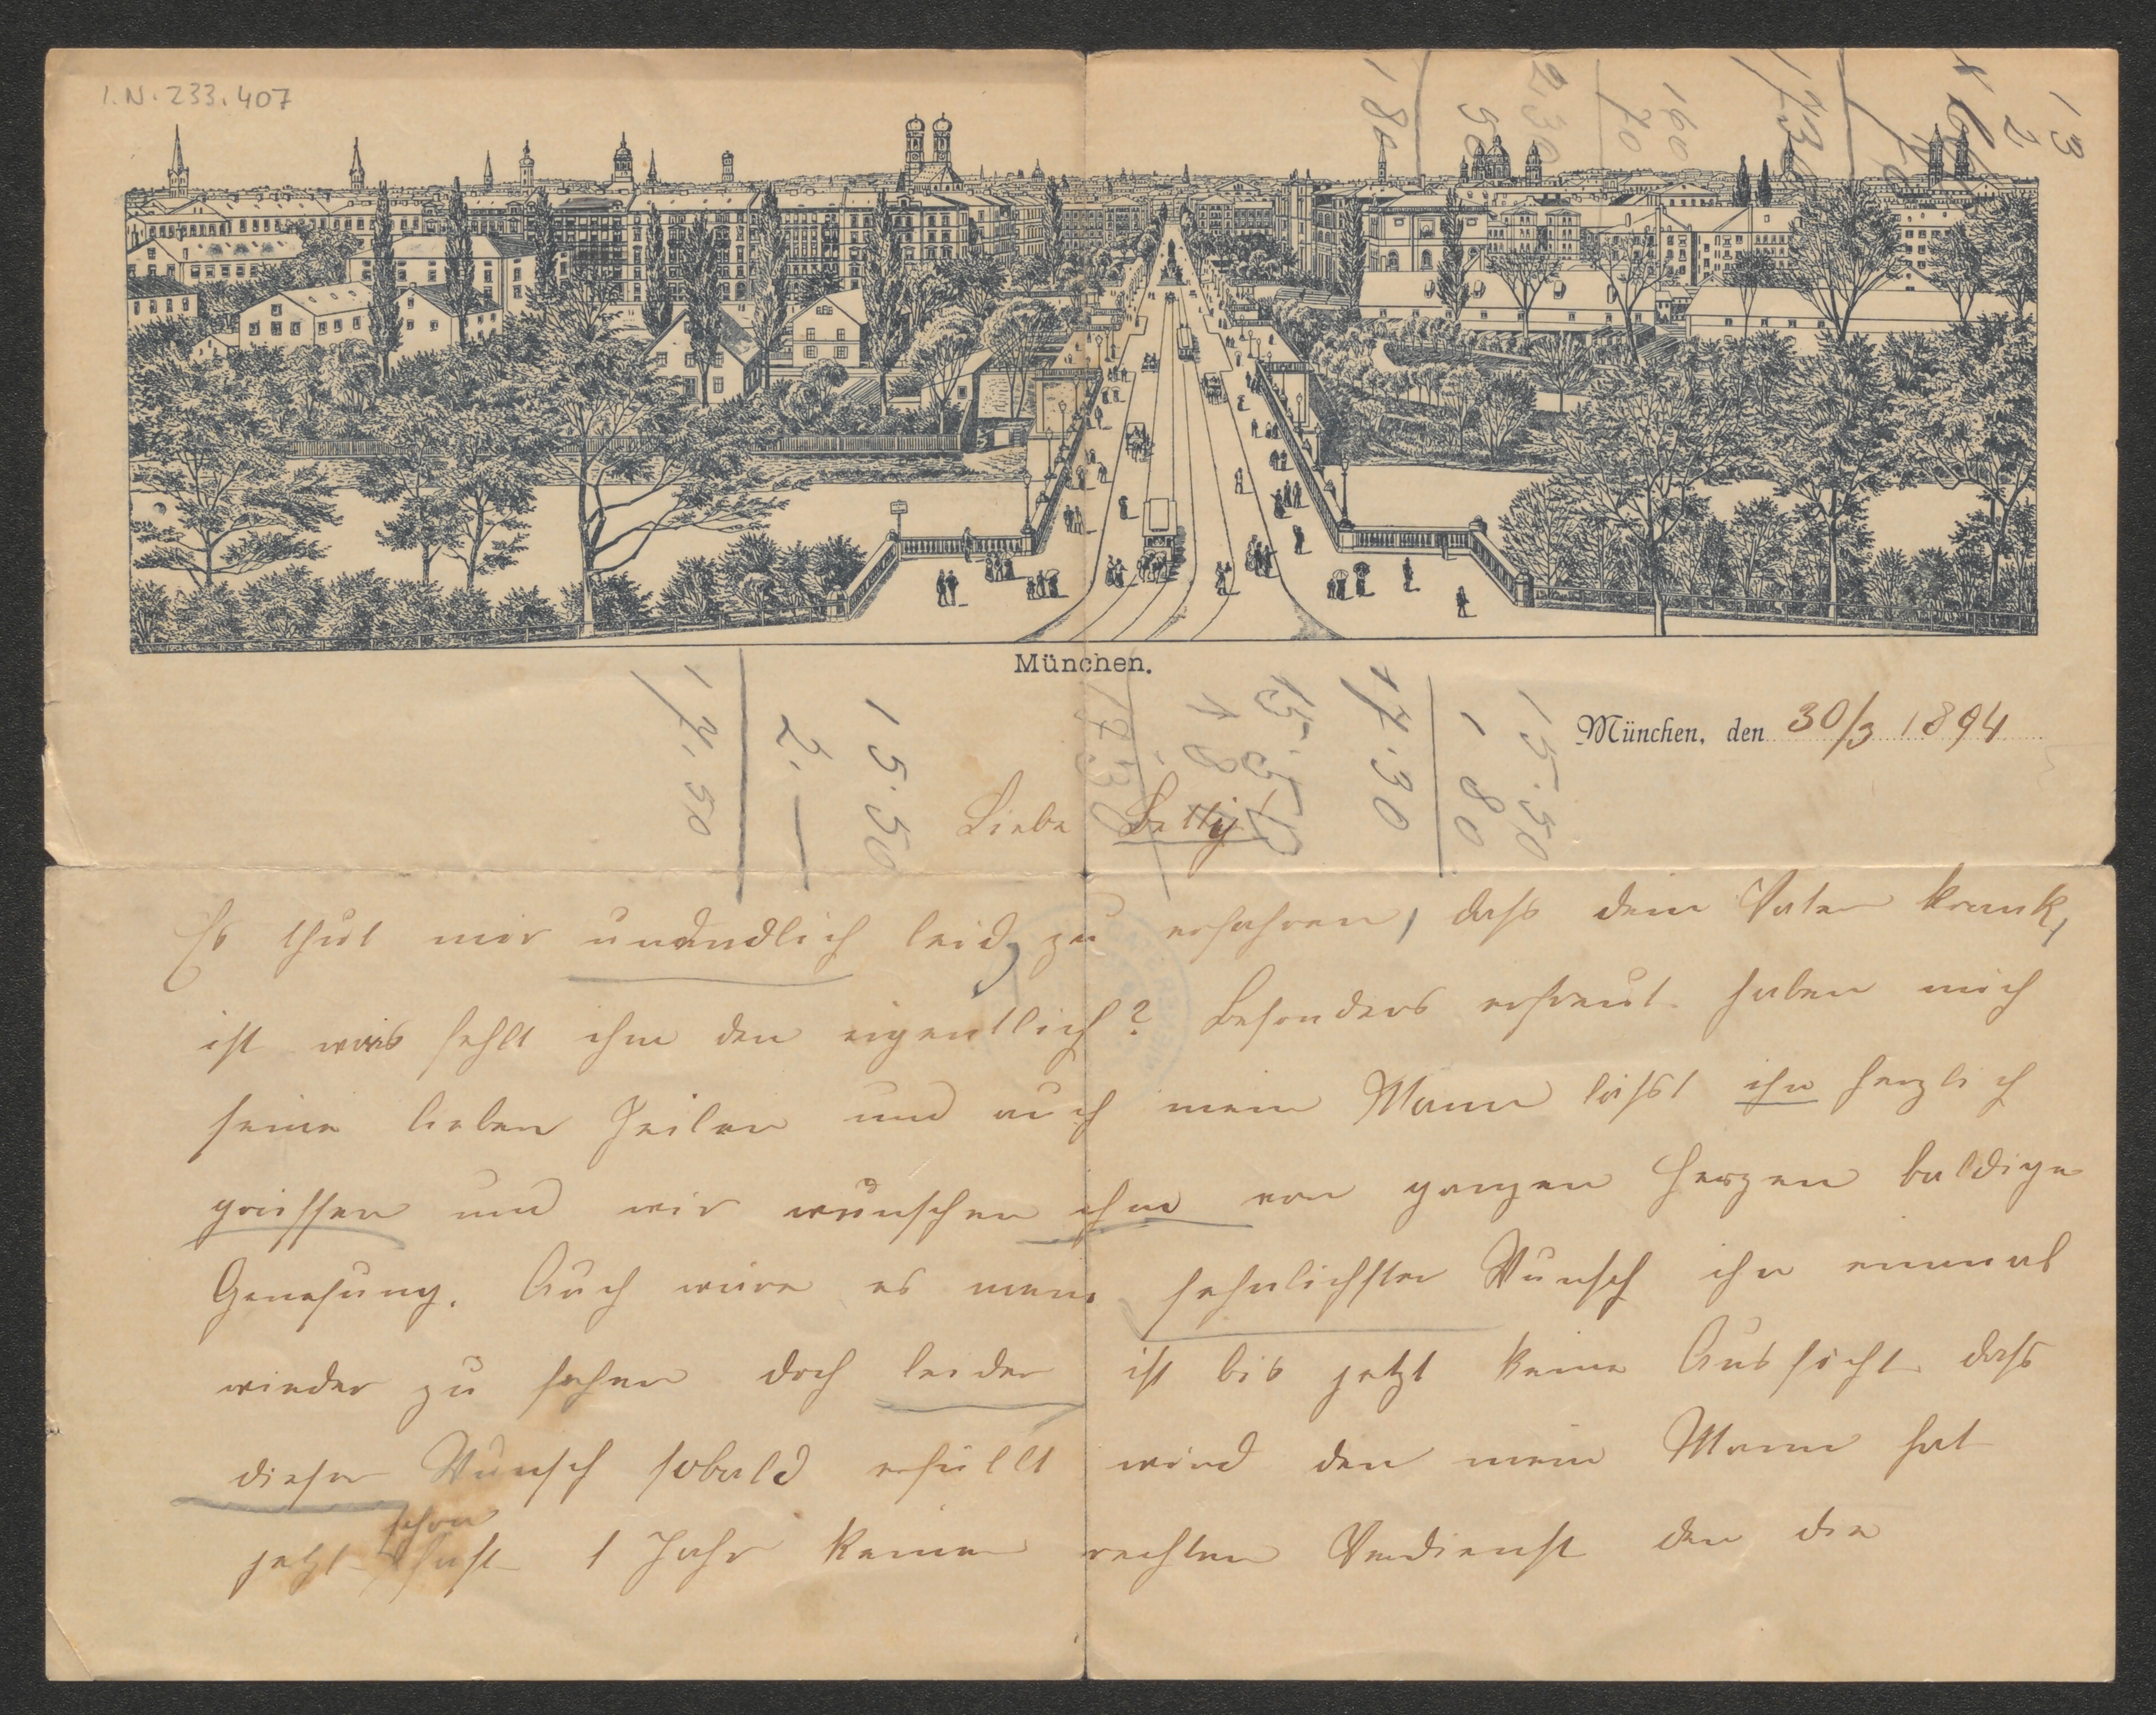 I.N. 233.407
180
50
230
70
160
1730
13
2
München.
München, den 30/3 1894
17.50
2.—
15.50
1730
18
15.50
17.30
180
15.50
Liebe Betty!
Es thut mir unendlich leid, zu erfahren, daß dein Vater krank,
ist was fehlt ihm den eigentlich? Besonders erfreut haben mich
seine lieben Zeilen und auch mein Mann läßt ihn herzlich
grüssen und wir wünschen ihm von ganzen Herzen baldige
Genesung. Auch wäre es mein sehnlichster Wunsch ihn einmal
wieder zu sehen doch leider ist bis jetzt keine Aussicht daß
dieser Wunsch sobald erfüllt wird den mein Mann hat
schon
jetzt fast 1 Jahr keinen rechten Verdienst den die